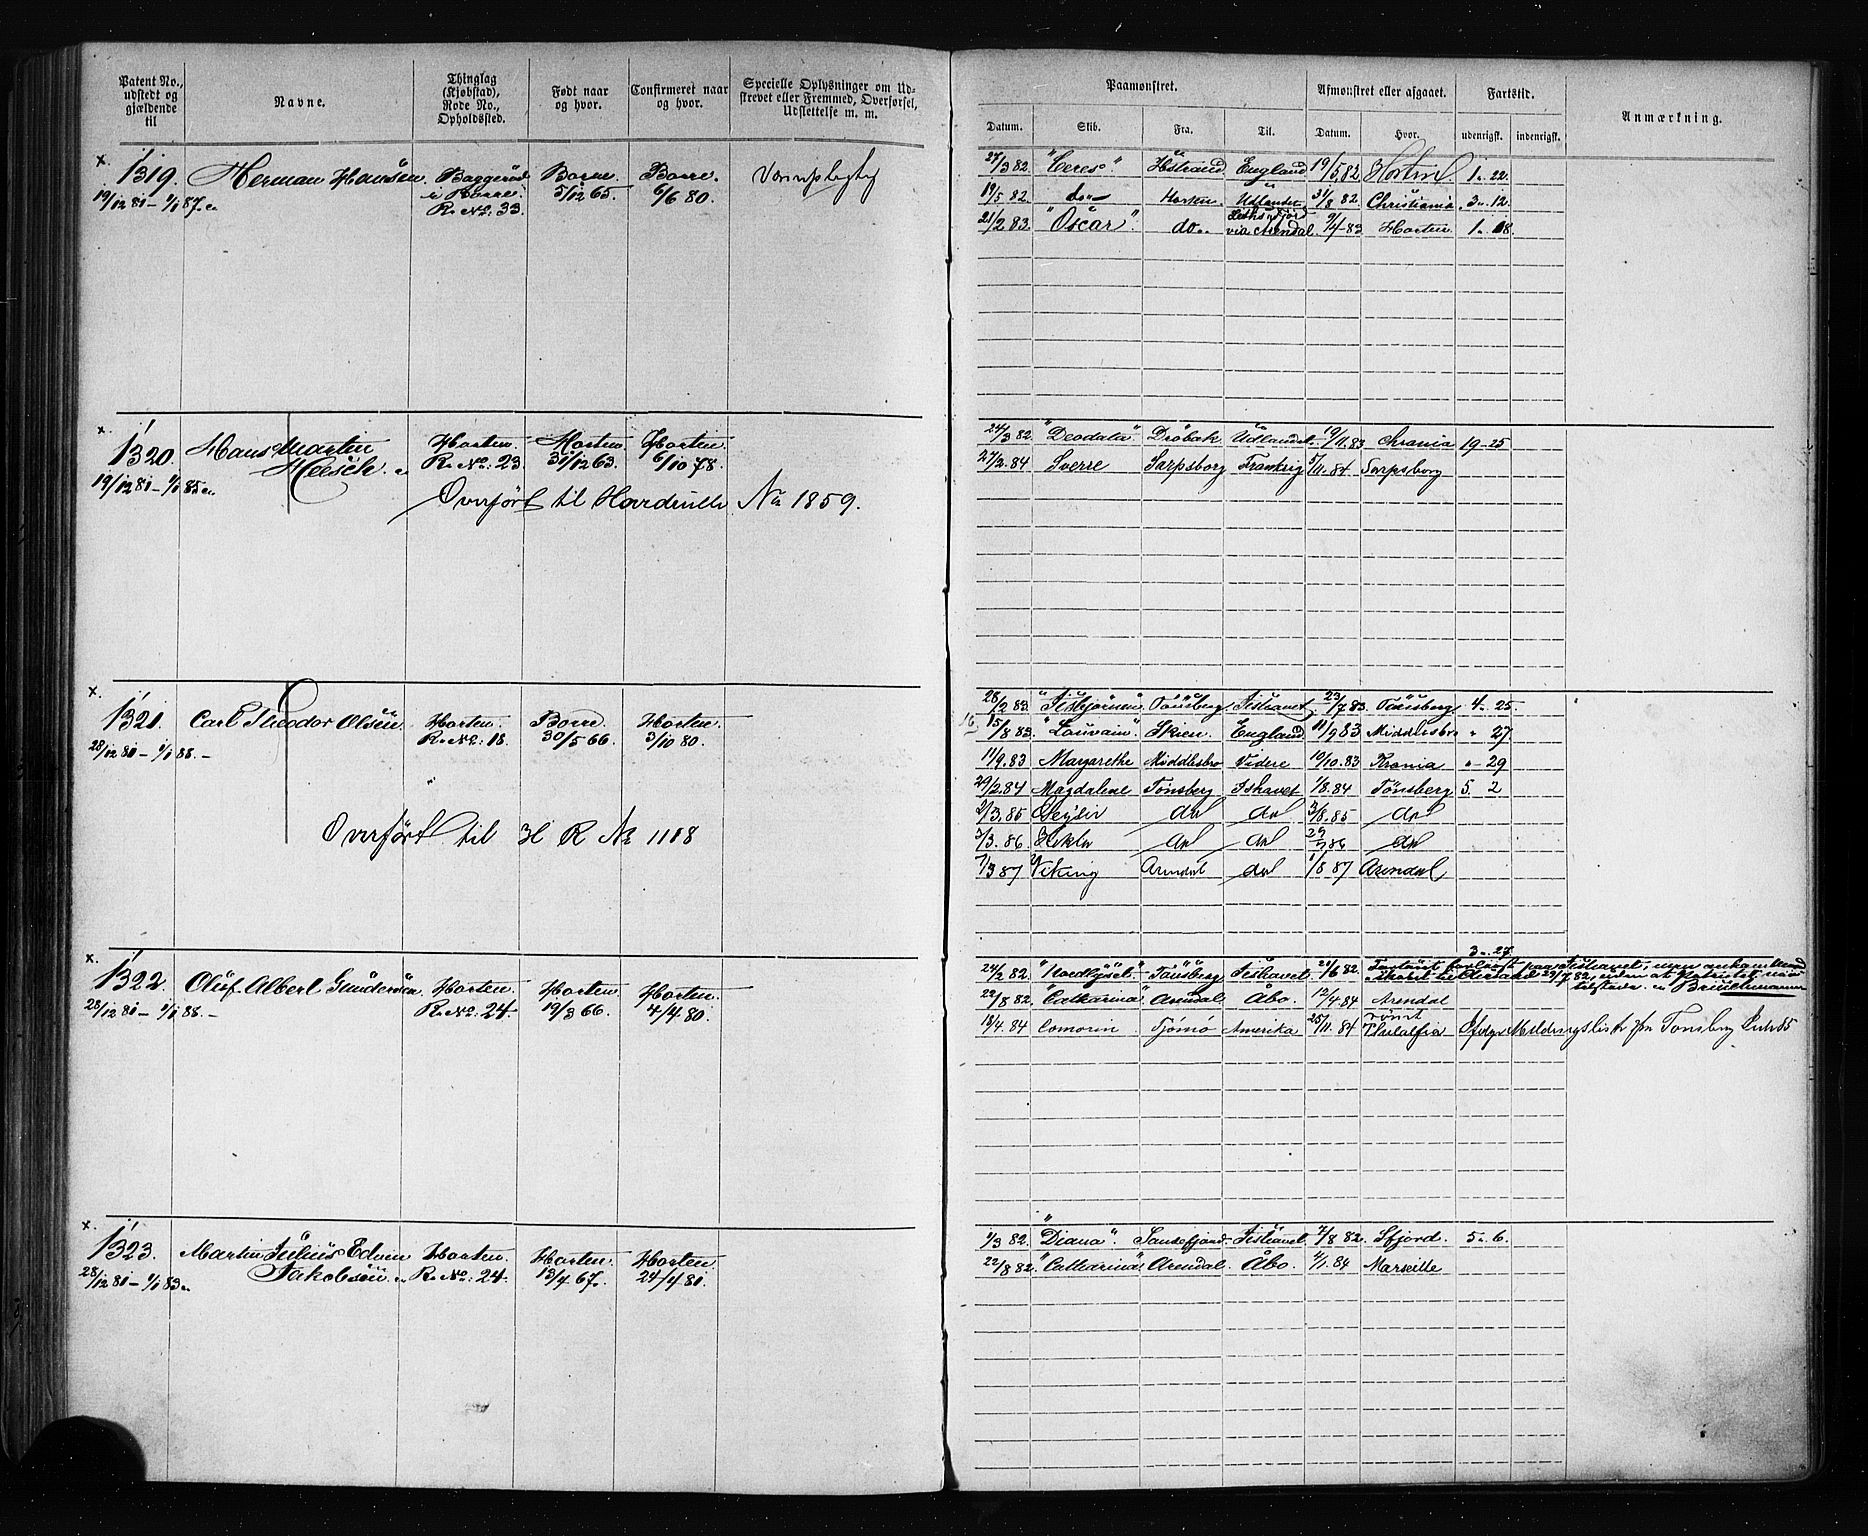 Patent No., udstedt og gjældende til
Navne.
Thinglag (Kjøbstad), Rode No., Opholdssted.
Født naar og hvor.
Confirmeret naar og hvor.
Specielle Oplysninger om Udskrevet eller Fremmed, Overførsel, Udslettelse m. m.
Paamønstret.
Afmønstret eller afgaaet.
Fartstid.
Anmærkning.
Datum. Skib. Fra. Til. Datum. Hvor. udenrigsk. indenrigsk.
x. 1319. Herman Hansen. Baggerød Borre. Borre.
i Borre. 5/12 65. 6/6 80.
19/12 81 - 1/1 87. R. No. 33.
27/3 82. "Ceres" Hstrand England 19/5 82 Horten 1 " 22.
19/5 82 do Horten Udlandet 31/8 82. Christiania 3 " 12.
21/2 83. "Oscar". do via Arendal 9/4 83 Horten 1 " 18.
x. 1320. Hans Martin Horten. Horten. Horten.
Heesch. R. No. 23. 31/12 63. 6/10 78.
19/12 81 - 1/1 85
Overført til Hovedrulle No 1859.
24/3 82. "Deodata" Drøbak Udlandet 19/11 83 Chrania 19 - 25
27/2. 84 Sverre Sarpsborg Frankrig 5/11. 84 Sarpsborg
x. 1321. Carl Theodor Olsen Horten. Borre. Horten.
R. No. 18. 30/5 66. 3/10 80.
28/12 81 - 1/1 88. -
Overført til H R No 1118
28/2 83. "Isbjørnen" Tønsberg Ishavet 23/7 83. Tønsberg 4 " 25.
16 15/8 83. "Louvain" Skien. England 11/9 83 Middlesbro " 27
11/9. 83 Margarethe Middlesbro Videre 10/10. 83 Krania " - 29
29/2. 84 Magdalene Tønsberg Ishavet 1/8. 84 Tønsberg 5. 2
2/3. 85 Geysir do do 3/8. 85 do
3/3. 86 Hekla do do 29/7 86 do
7/3 87 Viking Arendal do 1/8 87 Arendal
x. 1322. Oluf Albert Gundersen Horten. Horten. Horten.
R. No. 24. 19/3 66. 4/4 80.
28/12 81 - 1/1 88. -
3 " 27.
24/2 82. "Nordlyset" Tønsberg Ishavet 21/6 82.
22/8 82. "Catharina" Arendal Åbo. 12/4. 84 Arendal
18/4. 84 Comorin Tjømø Amerika 25/11. 84 rømt
x. 1323. Martin Julius Edvin Horten. Horten. Horten.
Jakobsen. R. No. 24. 13/4 67. 24/4 81.
28/12 81 - 1/1 89
1/3 82. "Diana". Sandefjord Ishavet 7/8 82. Sfjord. 5 " 6.
22/8 82. "Catharina" Arendal. Åbo. 4/1. 84 Marseille